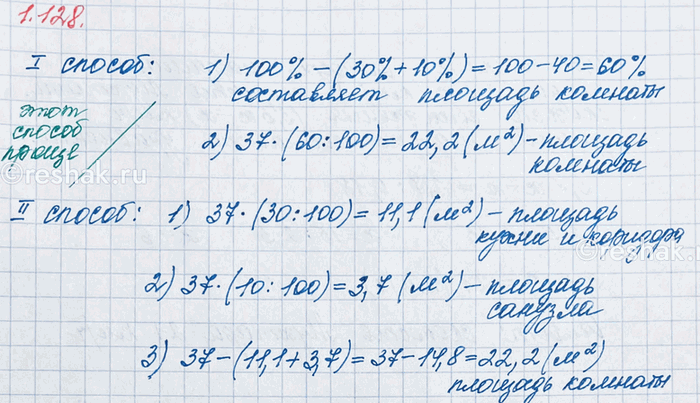 1.128.
I способ: 1) 100% – (30% + 10%) = 100 – 40 = 60%
составляет площадь комнаты
этот
способ
проще
2) 37 · (60 : 100) = 22,2 (м²) – площадь
комнаты
©reshak.ru
II способ: 1) 37 · (30 : 100) = 11,1 (м²) – площадь
кухни и коридора
2) 37 · (10 : 100) = 3,7 (м²) – площадь
санузла
3) 37 – (11,1 + 3,7) = 37 – 14,8 = 22,2 (м²)
площадь комнаты